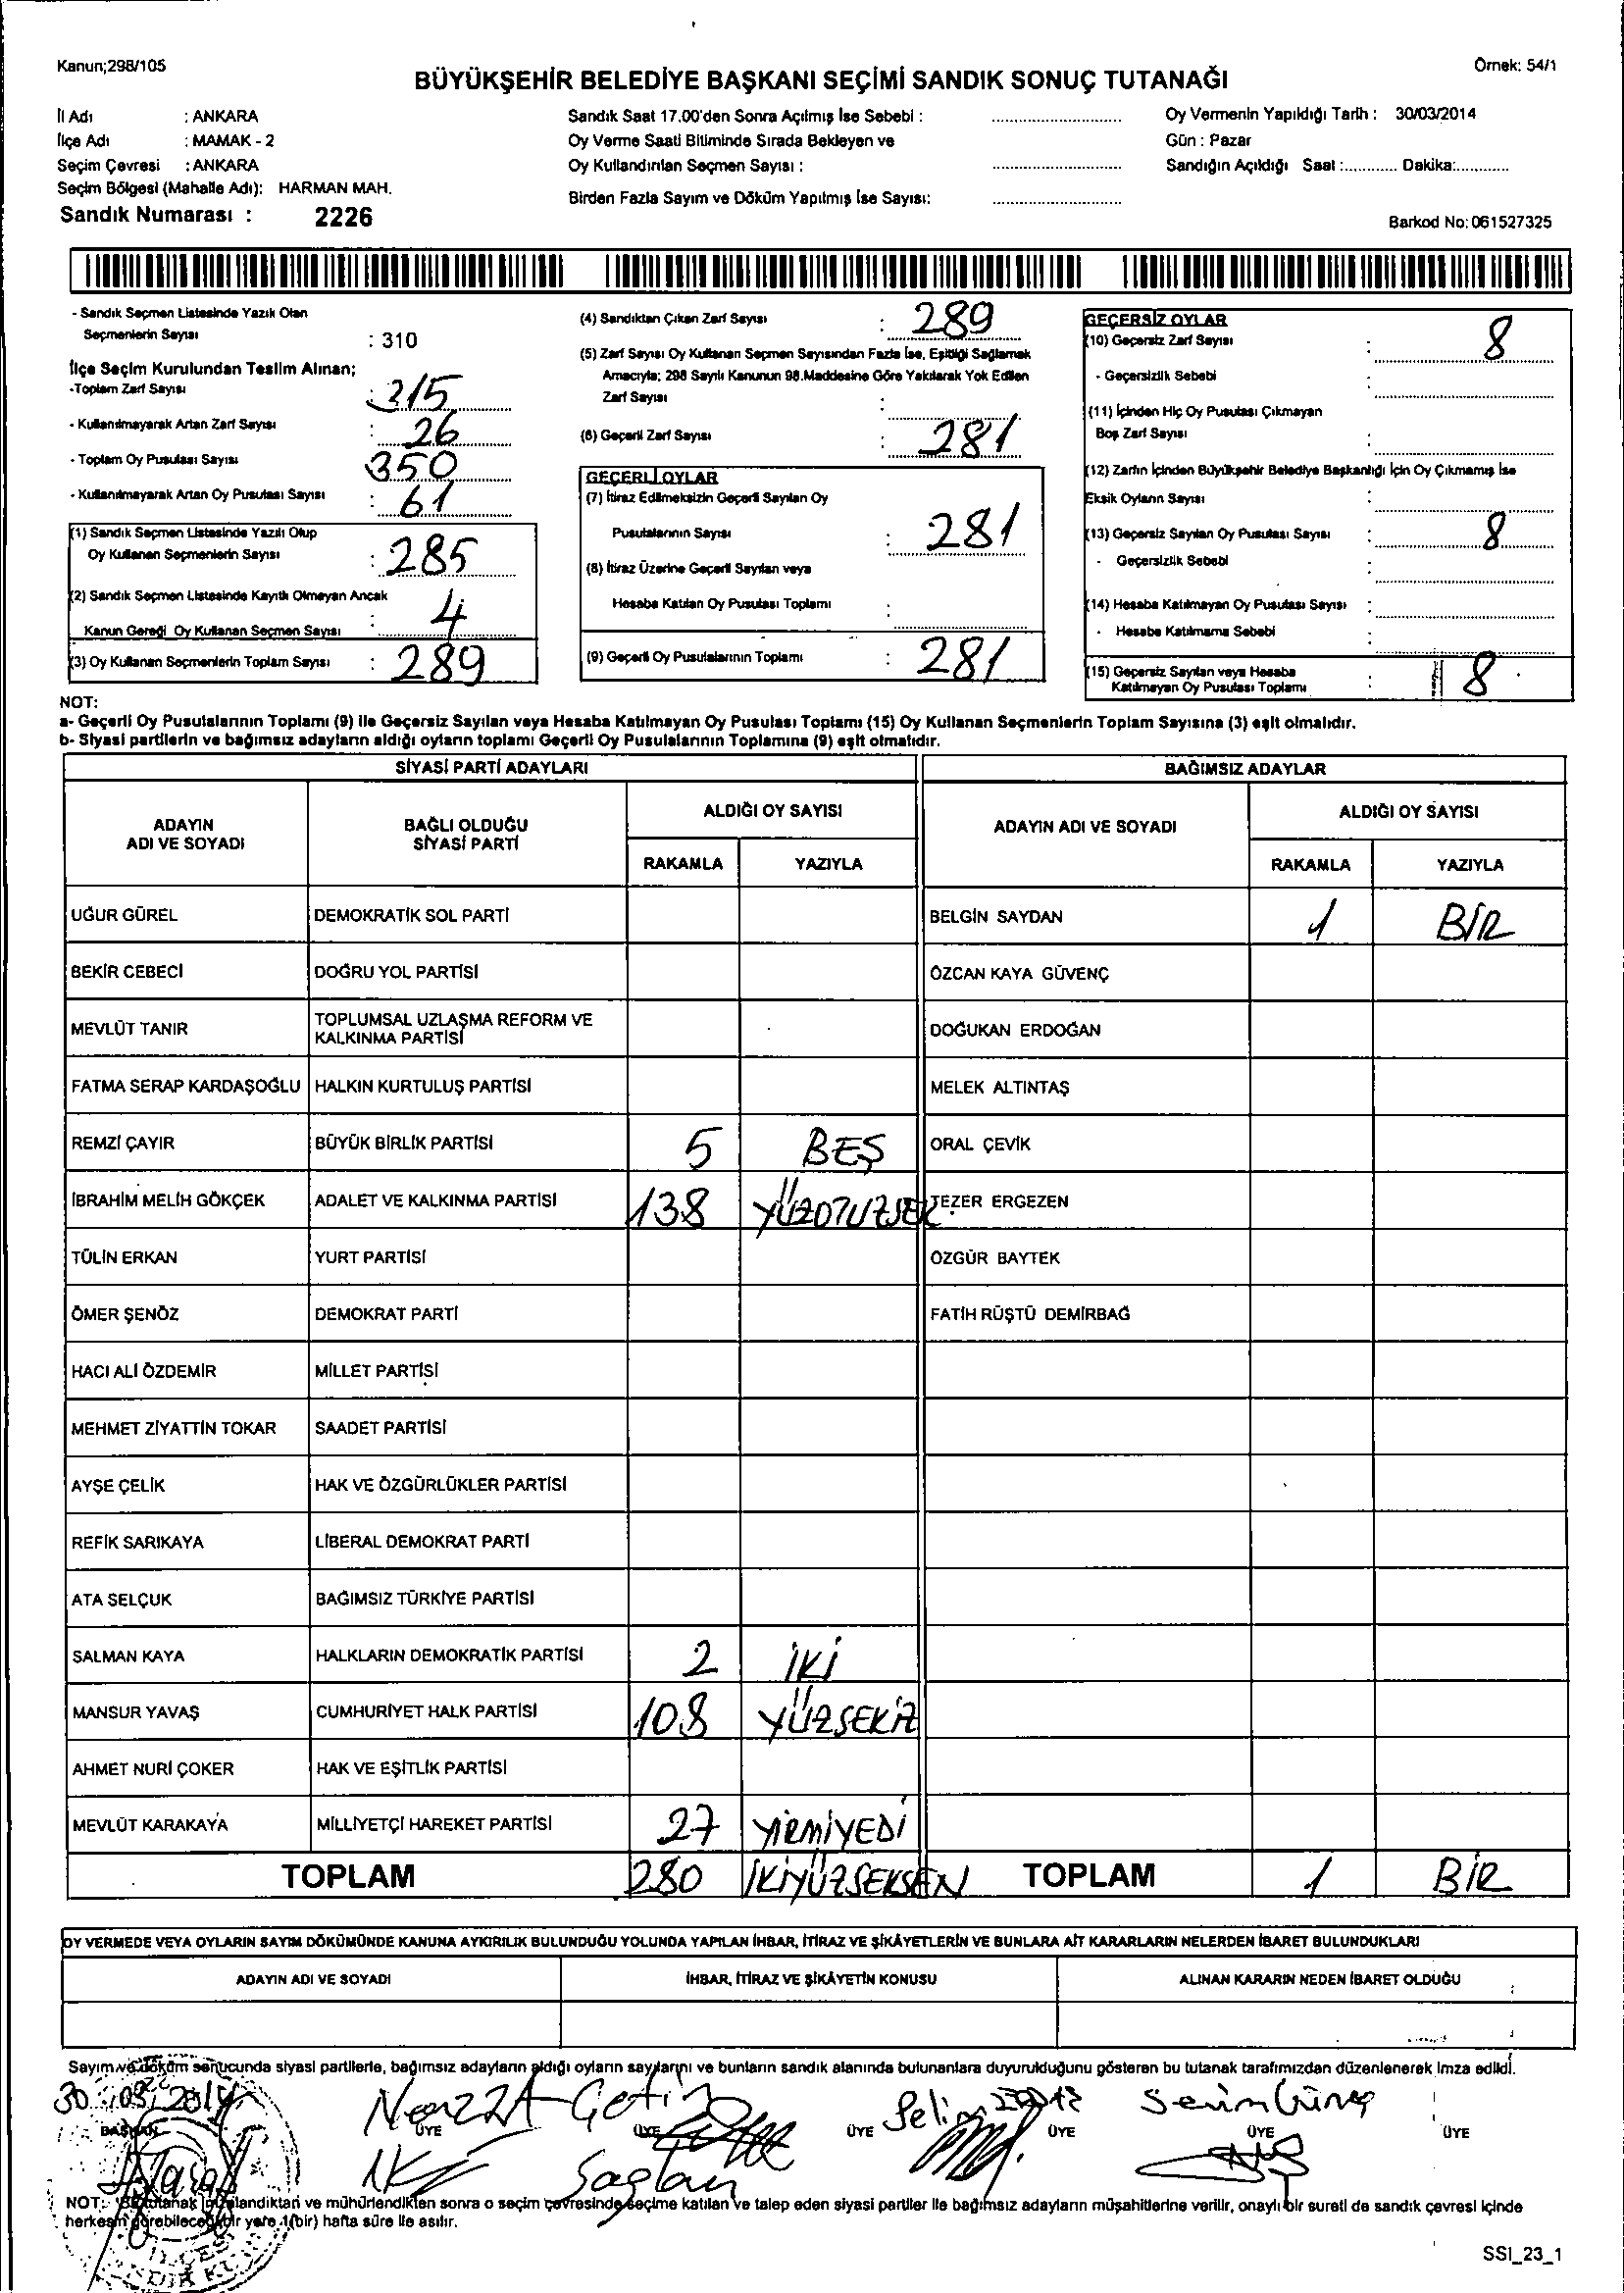 Kanun;298/105
Örnek: 54/1
BÜYÜKŞEHİR BELEDİYE BAŞKANI SEÇİMİ SANDIK SONUÇ TUTANAĞI
İl Adı : ANKARA
İlçe Adı : MAMAK - 2
Seçim Çevresi : ANKARA
Seçim Bölgesi (Mahalle Adı): HARMAN MAH.
Sandık Numarası : 2226
Sandık Saat 17.00'den Sonra Açılmış İse Sebebi :
Oy Verme Saati Bitiminde Sırada Bekleyen ve
Oy Kullandırılan Seçmen Sayısı :
Birden Fazla Sayım ve Döküm Yapılmış İse Sayısı:
Oy Vermenin Yapıldığı Tarih : 30/03/2014
Gün : Pazar
Sandığın Açıldığı Saat :............ Dakika:............
Barkod No: 061527325
- Sandık Seçmen Listesinde Yazılı Olan
Seçmenlerin Sayısı : 310
İlçe Seçim Kurulundan Teslim Alınan;
-Toplam Zarf Sayısı : 315
- Kullanılmayarak Artan Zarf Sayısı : 26
- Toplam Oy Pusulası Sayısı 350
- Kullanılmayarak Artan Oy Pusulası Sayısı : 61
(1) Sandık Seçmen Listesinde Yazılı Olup
Oy Kullanan Seçmenlerin Sayısı : 285
(2) Sandık Seçmen Listesinde Kayıtlı Olmayan Ancak
Kanun Gereği Oy Kullanan Seçmen Sayısı : 4
(3) Oy Kullanan Seçmenlerin Toplam Sayısı : 289
(4) Sandıktan Çıkan Zarf Sayısı : 289
(5) Zarf Sayısı Oy Kullanan Seçmen Sayısından Fazla İse, Eşitliği Sağlamak
Amacıyla; 298 Sayılı Kanunun 98.Maddesine Göre Yakılarak Yok Edilen
Zarf Sayısı :
(6) Geçerli Zarf Sayısı : 281
GEÇERLİ OYLAR
(7) İtiraz Edilmeksizin Geçerli Sayılan Oy
Pusulalarının Sayısı : 281
(8) İtiraz Üzerine Geçerli Sayılan veya
Hesaba Katılan Oy Pusulası Toplamı :
(9) Geçerli Oy Pusulalarının Toplamı : 281
GEÇERSİZ OYLAR
(10) Geçersiz Zarf Sayısı : 8
- Geçersizlik Sebebi :
(11) İçinden Hiç Oy Pusulası Çıkmayan
Boş Zarf Sayısı :
(12) Zarfın İçinden Büyükşehir Belediye Başkanlığı İçin Oy Çıkmamış İse
Eksik Oyların Sayısı :
(13) Geçersiz Sayılan Oy Pusulası Sayısı : 8
- Geçersizlik Sebebi :
(14) Hesaba Katılmayan Oy Pusulası Sayısı :
- Hesaba Katılmama Sebebi :
(15) Geçersiz Sayılan veya Hesaba
Katılmayan Oy Pusulası Toplamı : 8
NOT:
a- Geçerli Oy Pusulalarının Toplamı (9) ile Geçersiz Sayılan veya Hesaba Katılmayan Oy Pusulası Toplamı (15) Oy Kullanan Seçmenlerin Toplam Sayısına (3) eşit olmalıdır.
b- Siyasi partilerin ve bağımsız adayların aldığı oyların toplamı Geçerli Oy Pusulalarının Toplamına (9) eşit olmalıdır.
SİYASİ PARTİ ADAYLARI BAĞIMSIZ ADAYLAR
ADAYIN ADI VE SOYADI BAĞLI OLDUĞU SİYASİ PARTİ ALDIĞI OY SAYISI ADAYIN ADI VE SOYADI ALDIĞI OY SAYISI
RAKAMLA YAZIYLA RAKAMLA YAZIYLA
UĞUR GÜREL DEMOKRATİK SOL PARTİ BELGİN SAYDAN 1 BİR
BEKİR CEBECİ DOĞRU YOL PARTİSİ ÖZCAN KAYA GÜVENÇ
MEVLÜT TANIR TOPLUMSAL UZLAŞMA REFORM VE KALKINMA PARTİSİ DOĞUKAN ERDOĞAN
FATMA SERAP KARDAŞOĞLU HALKIN KURTULUŞ PARTİSİ MELEK ALTINTAŞ
REMZİ ÇAYIR BÜYÜK BİRLİK PARTİSİ 5 BEŞ ORAL ÇEVİK
İBRAHİM MELİH GÖKÇEK ADALET VE KALKINMA PARTİSİ 138 YÜZOTUZSEK. TEZER ERGEZEN
TÜLİN ERKAN YURT PARTİSİ ÖZGÜR BAYTEK
ÖMER ŞENÖZ DEMOKRAT PARTİ FATİH RÜŞTÜ DEMİRBAĞ
HACI ALİ ÖZDEMİR MİLLET PARTİSİ
MEHMET ZİYATTİN TOKAR SAADET PARTİSİ
AYŞE ÇELİK HAK VE ÖZGÜRLÜKLER PARTİSİ
REFİK SARIKAYA LİBERAL DEMOKRAT PARTİ
ATA SELÇUK BAĞIMSIZ TÜRKİYE PARTİSİ
SALMAN KAYA HALKLARIN DEMOKRATİK PARTİSİ 2 İKİ
MANSUR YAVAŞ CUMHURİYET HALK PARTİSİ 108 YÜZSEKİZ
AHMET NURİ ÇOKER HAK VE EŞİTLİK PARTİSİ
MEVLÜT KARAKAYA MİLLİYETÇİ HAREKET PARTİSİ 27 YİRMİYEDİ
TOPLAM 280 İKİYÜZSEKSEN TOPLAM 1 BİR
OY VERMEDE VEYA OYLARIN SAYIM DÖKÜMÜNDE KANUNA AYKIRILIK BULUNDUĞU YOLUNDA YAPILAN İHBAR, İTİRAZ VE ŞİKÂYETLERİN VE BUNLARA AİT KARARLARIN NELERDEN İBARET BULUNDUKLARI
ADAYIN ADI VE SOYADI İHBAR, İTİRAZ VE ŞİKÂYETİN KONUSU ALINAN KARARIN NEDEN İBARET OLDUĞU
Sayım ve döküm sonucunda siyasi partilerle, bağımsız adayların aldığı oyların sayılarını ve bunların sandık alanında bulunanlara duyurulduğunu gösteren bu tutanak tarafımızdan düzenlenerek imza edildi.
30.03.2014 Çetin Selim
BAŞKAN ÜYE ÜYE ÜYE ÜYE ÜYE ÜYE
Saglam
NOT: Bu tutanak imzalandıktan ve mühürlendikten sonra o seçim çevresinde seçime katılan ve talep eden siyasi partiler ile bağımsız adayların müşahitlerine verilir, onaylı bir sureti de sandık çevresi içinde
herkesin görebileceği bir yere 1(bir) hafta süre ile asılır.
SSI_23_1